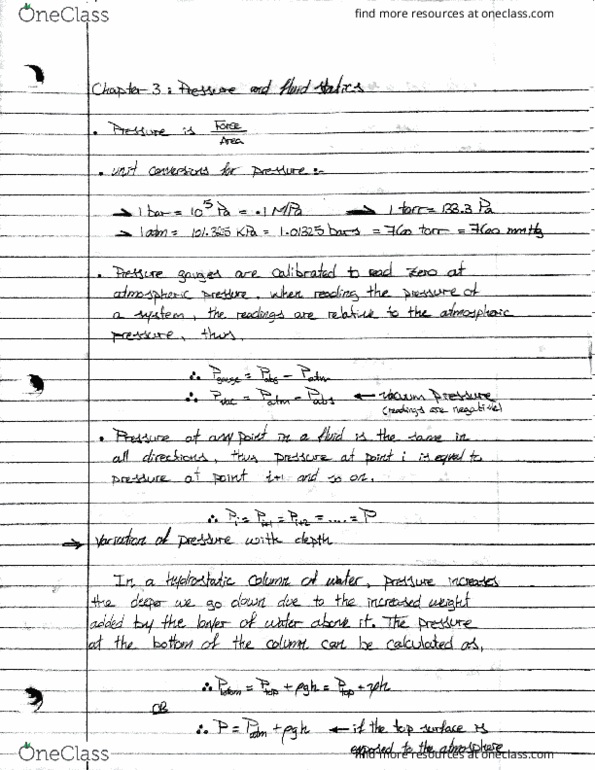 OneClass
find more resources at oneclass.com
Chapter 3 : Pressure and fluid statics
• Pressure is Force
Area
• unit conversions for pressure :-
→ 1 bar = 10⁵ Pa = .1 MPa → 1 torr = 133.3 Pa
→ 1 atm = 101.325 KPa = 1.01325 bars = 760 torr = 760 mmHg
• Pressure gauges are calibrated to read zero at
atmospheric pressure. when reading the pressure of
a system, the readings are relative to the atmospheric
pressure, thus,
∴ Pgauge = Pabs - Patm
∴ Pvac = Patm - Pabs ← vacuum pressure
(readings are negative)
• Pressure at any point in a fluid is the same in
all directions, thus pressure at point i is equal to
pressure at point i+1 and so on.
∴ Pi = Pi+1 = Pi+2 = .... = P
→ Variation of pressure with depth
In a hydrostatic column of water, pressure increases
the deeper we go down due to the increased weight
added by the layer of water above it. The pressure
at the bottom of the column can be calculated as,
∴ Pbottom = Ptop + ρgh = Ptop + γh
OR
∴ P = Patm + ρgh ← if the top surface is
exposed to the atmosphere
OneClass
find more resources at oneclass.com